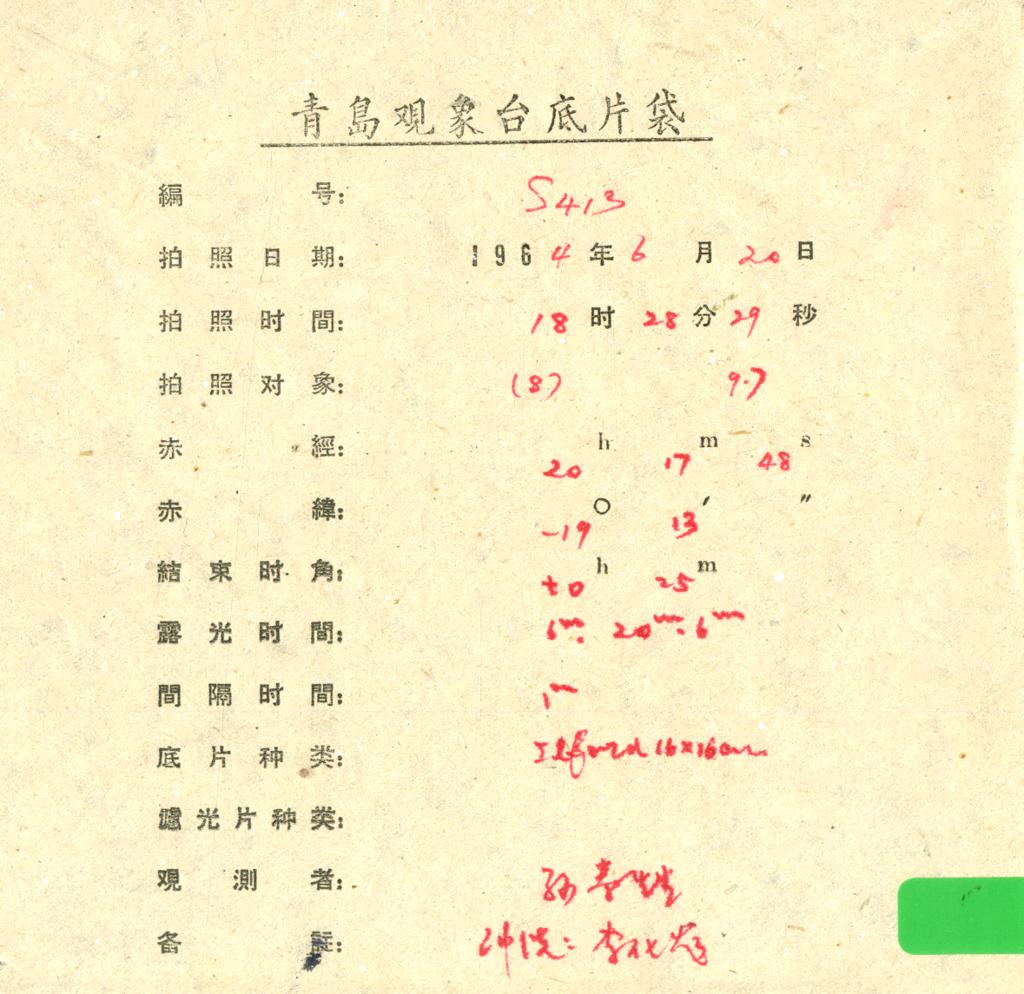 青島观象台底片袋
編号: S413
拍照日期: 1964年6月20日
拍照时間: 18时28分29秒
拍照对象: (8) 9.7
赤經: 20h 17m 48s
赤緯: -19° 13′ ″
結束时角: +0h 25m
露光时間: 6m. 20m. 6m
間隔时間: 1m
底片种类: Ilford 16×16cm
濾光片种类:
观測者: 孙春
备註: 冲洗: 李